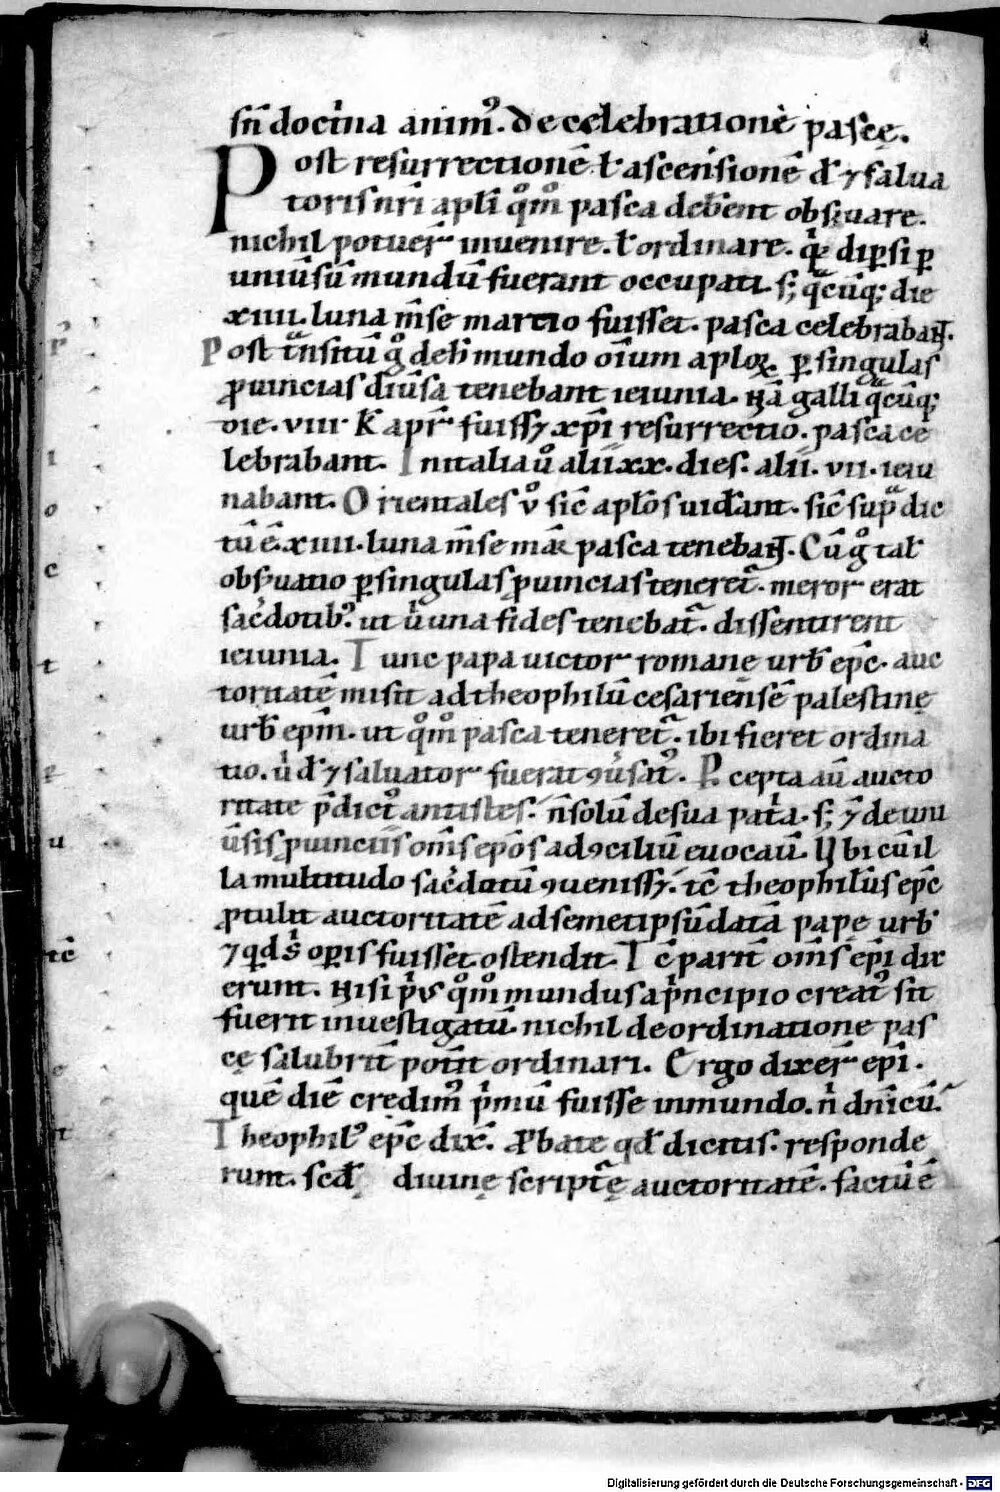 sn̄ doct̍ina anim᷒. De celebratione̅ pascę.
Post resurrectionē ƚ ascensionē dn̄i ⁊ salua
toris nr̄i apl̄i qͦmͦ pasca deber̄ent obseruare.
nichil potuer̄ inuenire. ƚ ordinare. q̍ꝑ diꝑsi ꝑ
uniūsū mundū fuerant occupati. s; qͣcūq; die
xiiii. luna m̄se martio fuisset. pasca celebrabant̄.
Post tͣnsitū gͦ de hͦ mundo oīum aploꝝ ꝑ singulas
ꝓuincias diūsa tenebant ieiunia. Nā galli qͣcūq;
die. viii. k̄ apr̄ fuiss; xp̄i resurrectio. pasca ce
lebrabant. In italia uͦ alii .xx. dies. alii .vii. ieiu
nabant. Orientales uͦ sic̄ apl̄os uider̄ant. sic̄ supͣ dic
tū ē. xiiii. luna m̄se mar̄ pasca tenebant̄. Cū gͦ tal̄
obs̄uatio ꝑ singulas ꝓuincias teneret᷑. meror erat
sac̄dotib᷒. ut u̍ una fides tenebat᷑. dissentirent
ieiunia. Tunc papa uictor romanę urb̄ ep̄c. auc
toritatē misit ad theophilū cesariensē palestinę
urb̄ epm̄. ut qͦmͦ pasca teneret᷑. ibi fieret ordina
tio. u̍ dn̄s ⁊ saluator fuerat ꝯūsat᷒. P̄cepta aū aucto
ritate p̄dict᷒ antistes. n̄ solū de sua pat̍a. s; ⁊ de uni
ūsis ꝓuinciis om̄s ep̄os ad ꝯciliū euocau̅. Ubi cū il
la multitudo sac̄dotū ꝯueniss;. tc̄ theophil᷒ ep̄c
ꝓtulit auctoritatē ad semetipsū datā papę urb̄
⁊ qd s̍ oꝑis fuisset ostendit. Tc̄ parit̄ om̄s ep̄i dix
erunt. Nisi p̍us qͦmͦ mundus a p̍ncipio creat᷒ sit
fuerit inuestigatū. nichil de ordinatione pas
cę salubrit̄ potit̄ ordinari. Ergo dixer̄ ep̄i.
quē diē credim᷒ p̍mū fuisse in mundo. n̍ dn̄icū.
Theophil᷒ ep̄c dix̄. Ꝓbate qd̄ dicitis. responde
runt. scd̄ diuinę scripturę auctoritatē. factū ē
r
i
o
c
t
u
tc̄
Digitalisierung gefördert durch die Deutsche Forschungsgemeinschaft - DFG